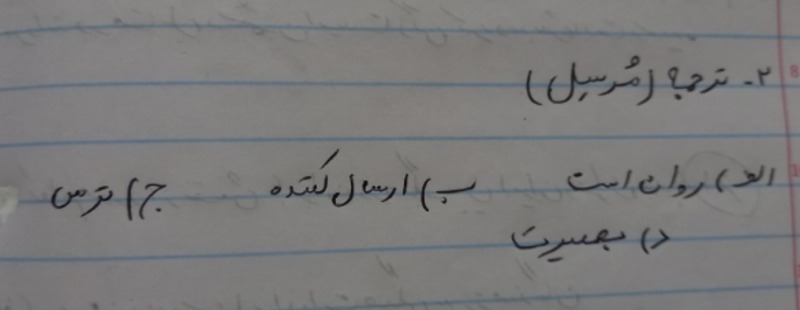 ۲- ترجمهٔ (مُرسِل)
الف) روان است ب) ارسال کننده ج) ترس
د) بصیرت